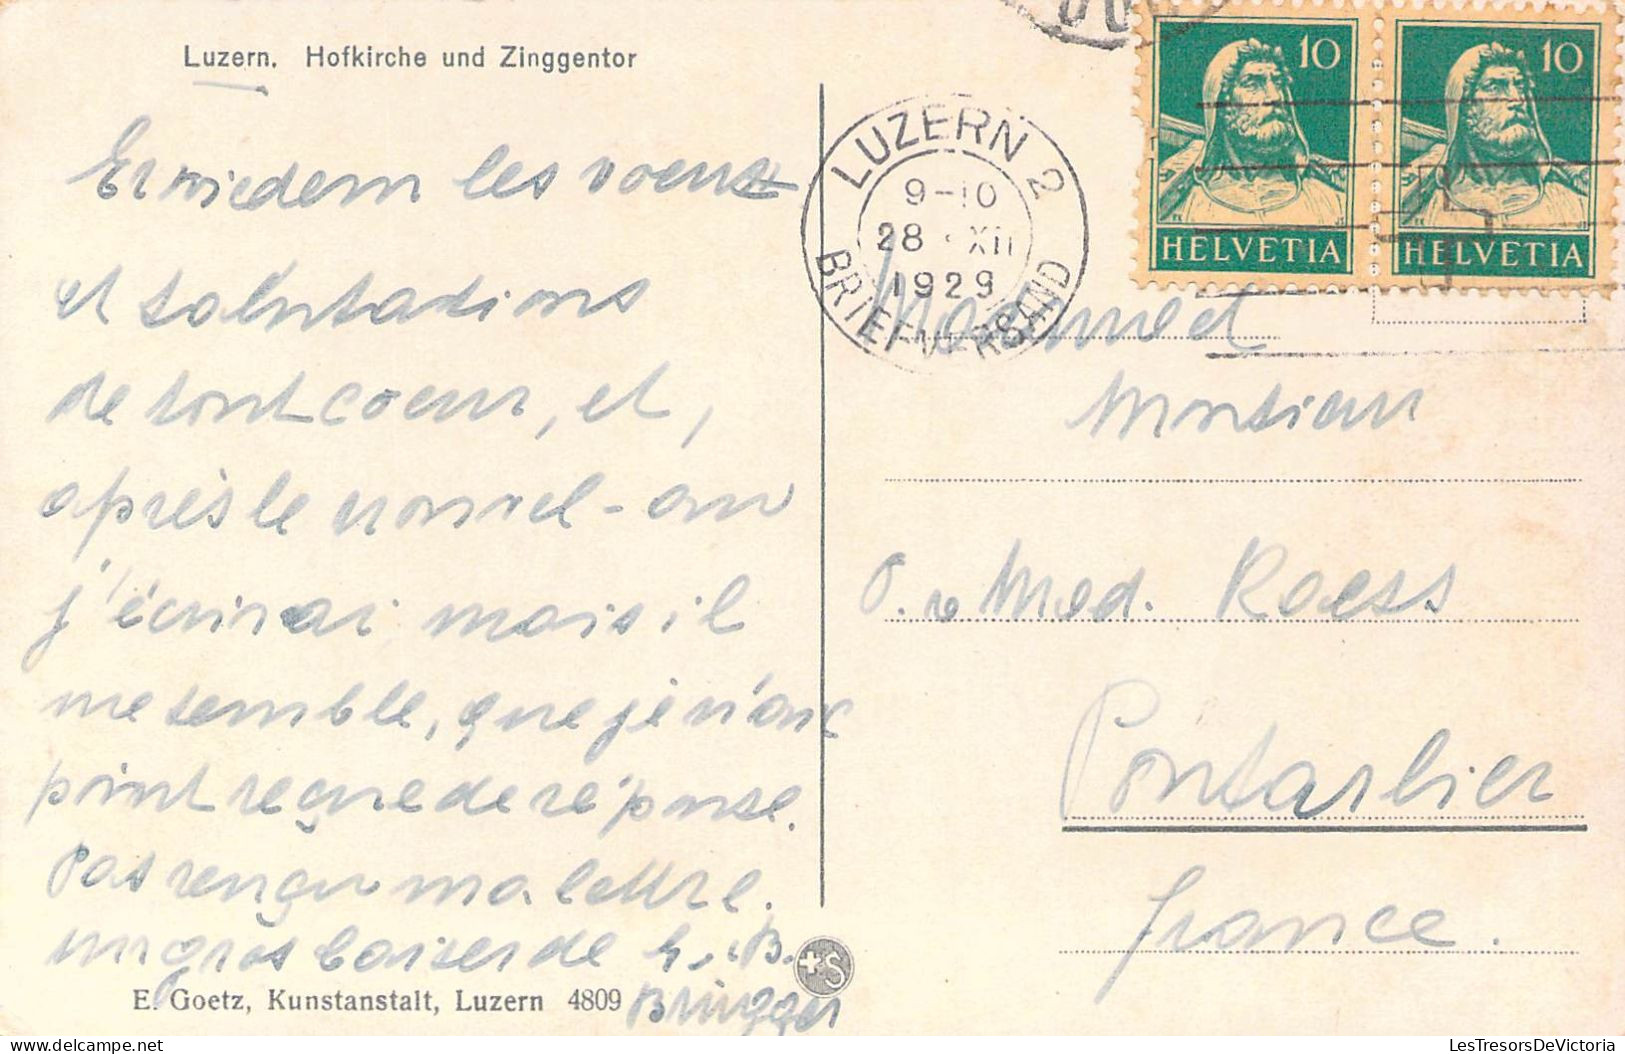 Luzern. Hofkirche und Zinggentor
Erwiedern les voeux
et salutations
de tout coeur, et,
après le nouvel-an
j'écrirai mais il
me semble, que je n'ai
point reçue de réponse.
Pas reçu ma lettre.
un gros baiser de
Brügger
E. Goetz, Kunstanstalt, Luzern 4809
+S
LUZERN 2
9-10
28 · XII
1929
BRIEFVERSAND
10
HELVETIA
10
HELVETIA
Monsieur
Med. Roess
Pontarlier
France.
LesTresorsDeVictoria
delcampe.net